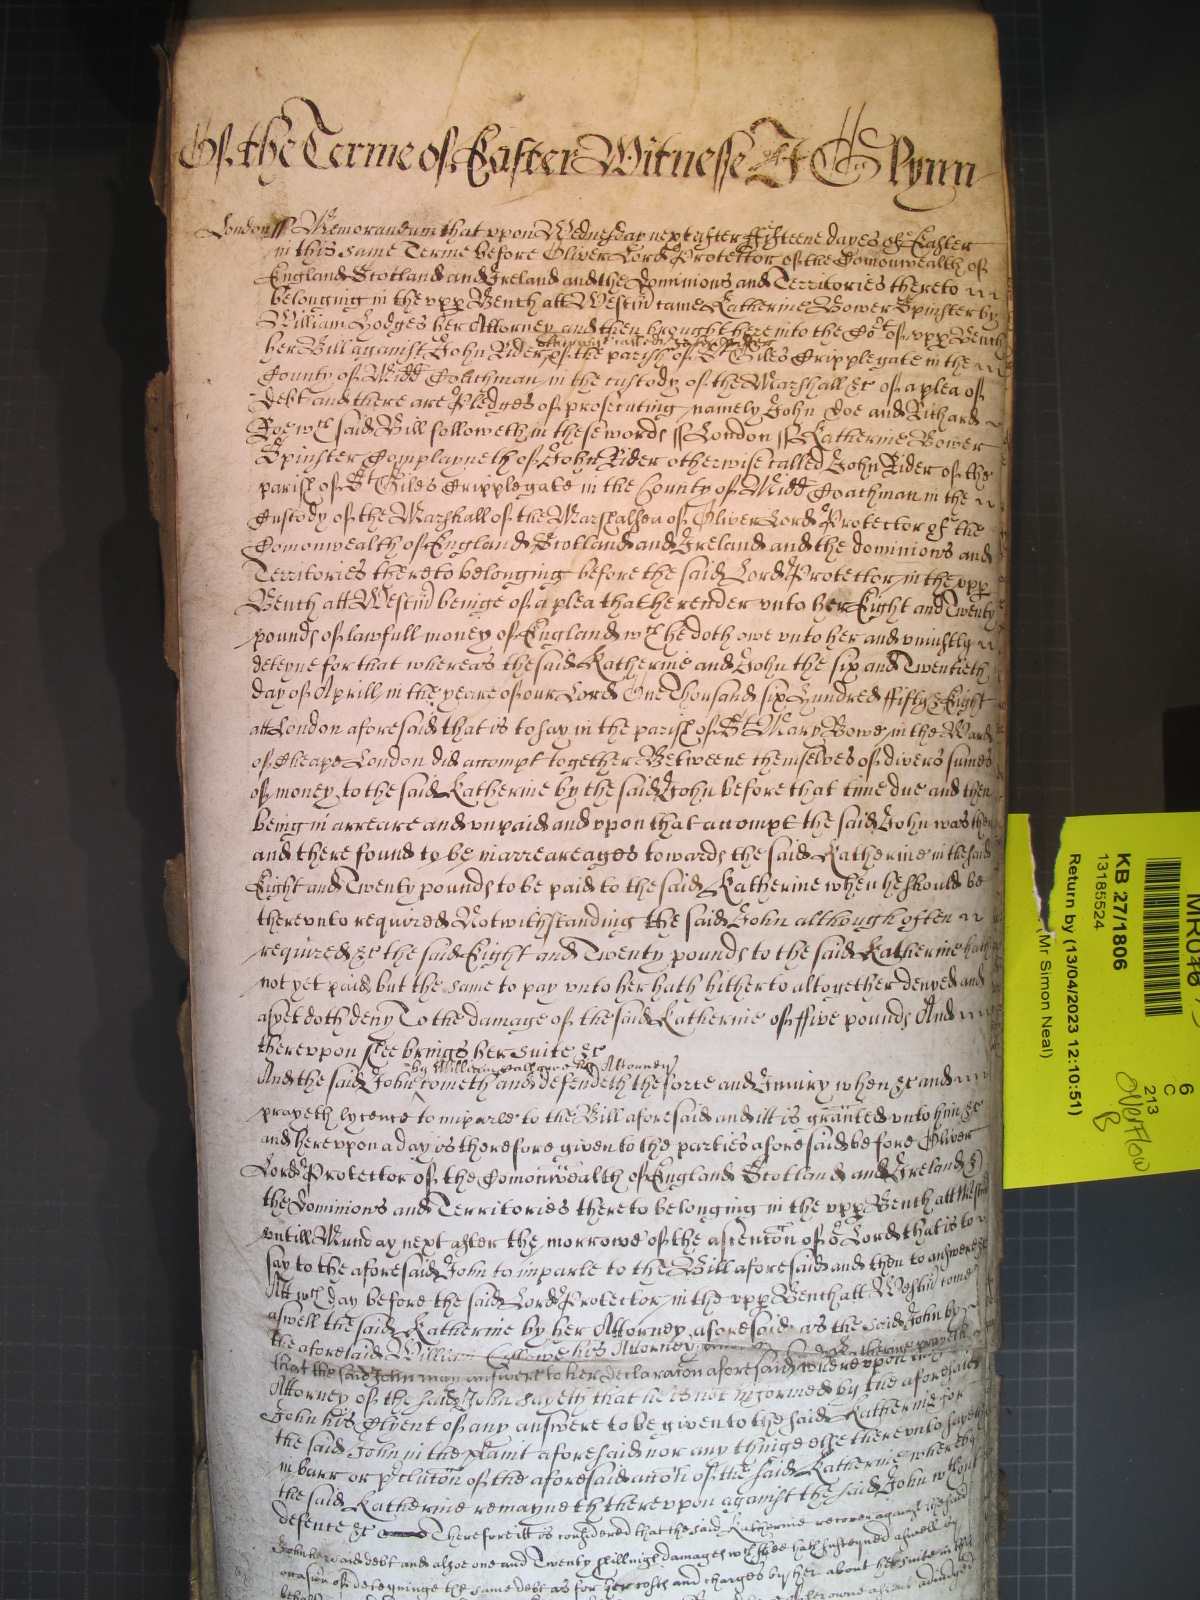 Of the Terme of Easter Witnesse J Glynn
London ss Memorandum that upon Wednesday next after ffifteene dayes of Easter
in this same Terme before Oliver Lord Protector of the Comonwealth of
England Scotland and Ireland and the Dominions and Territories thereto
belonging in the upp Bench att Westm came Katherine Bower Spinster by
William Hodges her Attorney and then brought here into the Cot of upp Bench
otherwise called John Rider
her Bill against John Rider of the parish of St Giles Cripplegate in the
County of Midd Coachman in the custody of the Marshall &c of a plea of
Debt and there are Pledges of prosecuting namely John Doe and Richard
Roe wch said Bill followeth in these words ss London ss Katherine Bower
Spinster Complayneth of John Rider otherwise called John Rider of the
parish of St Giles Cripplegate in the County of Midd Coachman in the
Custody of the Marshall of the Marshalsea of Oliver Lord Protector of the
Comonwealth of England Scotland and Ireland and the dominions and
Territories thereto belonging before the said Lord Protector in the upp
Bench att Westm beinge of a plea that he render unto her Eight and Twenty
pounds of lawfull money of England wch he doth owe unto her and uniustly
deteyne for that whereas the said Katherine and John the six and Twentieth
day of Aprill in the yeare of our Lord One Thousand six Hundred ffifty & Eight
att London aforesaid that is to say in the parish of St Mary Bowe in the Ward
of Cheape London did accompt together Betweene themselves of divers sumes
of money to the said Katherine by the said John before that time due and then
being in arreare and unpaid and upon that accompt the said John was then
and there found to be in arrearages towards the said Katherine in the said
Eight and Twenty pounds to be paid to the said Katherine when he should be
thereunto required Notwithstanding the said John although often
required &c the said Eight and Twenty pounds to the said Katherine hath
not yet paid but the same to pay unto her hath hitherto altogether denyed and
as yet doth deny To the damage of the said Katherine of ffive pounds And
thereupon shee brings her suite &c
by William his Attorney
And the said John cometh and defendeth the force and Iniury when &c and
prayeth lycence to imparle to the Bill aforesaid and itt is granted unto him &c
and hereupon a day is therefore given to the parties aforesaid before Oliver
Lord Protector of the Comonwealth of England Scotland and Ireland &
the Dominions and Territories thereto belonging in the upp Bench att Westm
untill Munday next after the morrowe of the ascencon of or Lord that is to
say to the aforesaid John to imparle to the Bill aforesaid and then to answere &c
Att wch day before the said Lord Protector in the upp Bench att Westm come
aswell the said Katherine by her Attorney aforesaid as the said John by
the aforesaid William his Attorney Katherine prayeth
that the said John may answere to her declaracon aforesaid whereupon
Attorney of the said John sayeth that he is not informed by the aforesaid
John his Clyent of any answere to be given to the said Katherine for
the said John in the plaint aforesaid nor any thinge else thereunto sayeth
in barr or pclucon of the aforesaid accon of the said Katherine whereby
the said Katherine remayneth thereupon against the said John without
defence &c Therefore itt is considered that the said Katherine recover against the said
John her said debt and alsoe one and Twenty shillings damages wch shee hath susteyned aswell by
occasion of deteyninge the same debt as for her costs and charges by her about her suite in this
behalf
6
C
213
Overflow
KB 27/1806
13185524
Return by (13/04/2023 12:10:51)
(Mr Simon Neal)